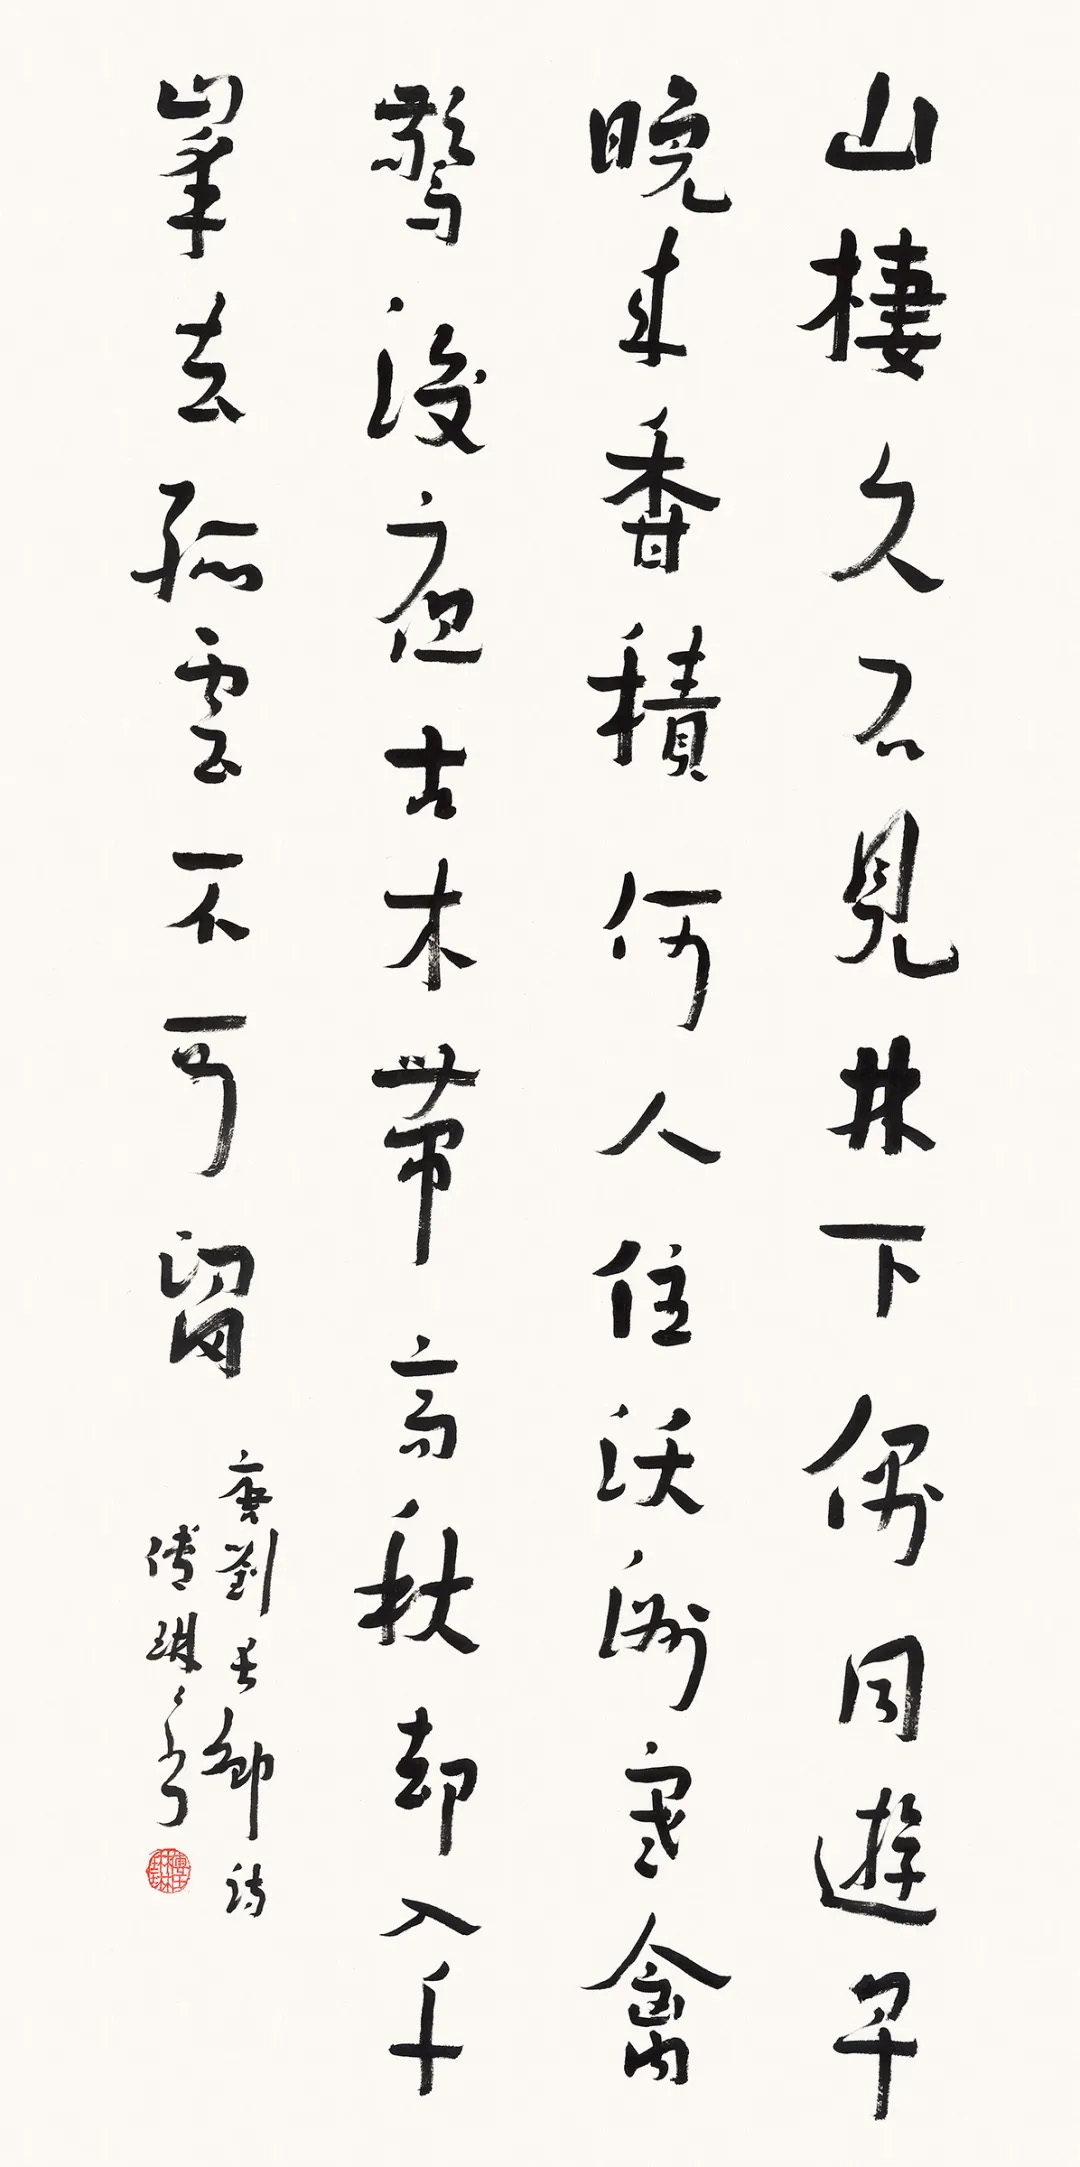 山棲久不見林下偶同遊早
晚來香積何人住沃洲寒禽
驚後夜古木帶高秋却入千
峯去孤雲不可留
唐劉長卿詩
傅琳